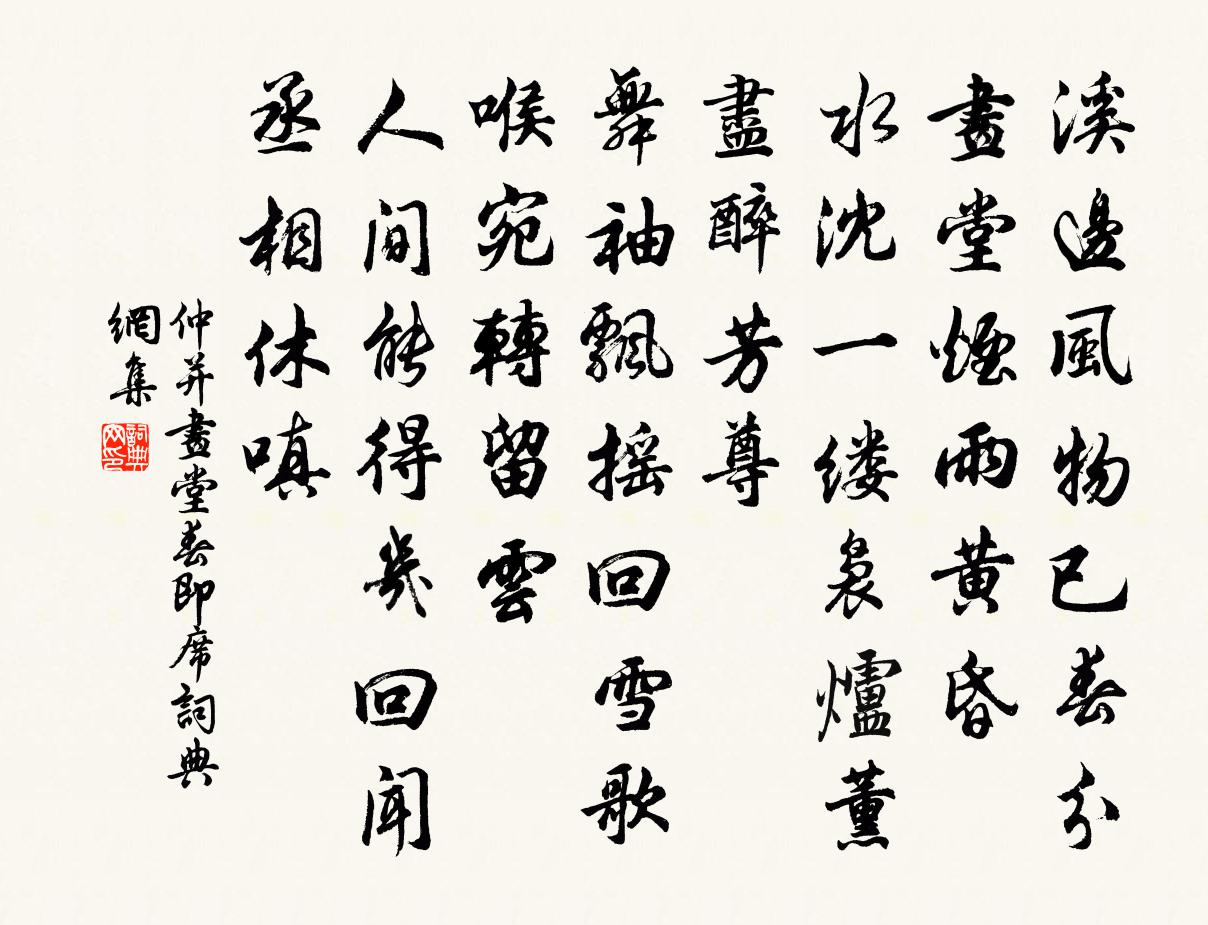 溪邊風物已春分
畫堂煙雨黃昏
水沈一缕裊爐薰
盡醉芳尊
舞袖飄摇回雪歌
喉宛轉留雲
人間能得幾回聞
丞相休嗔
仲并畫堂春即席詞典
網集
詞典网印